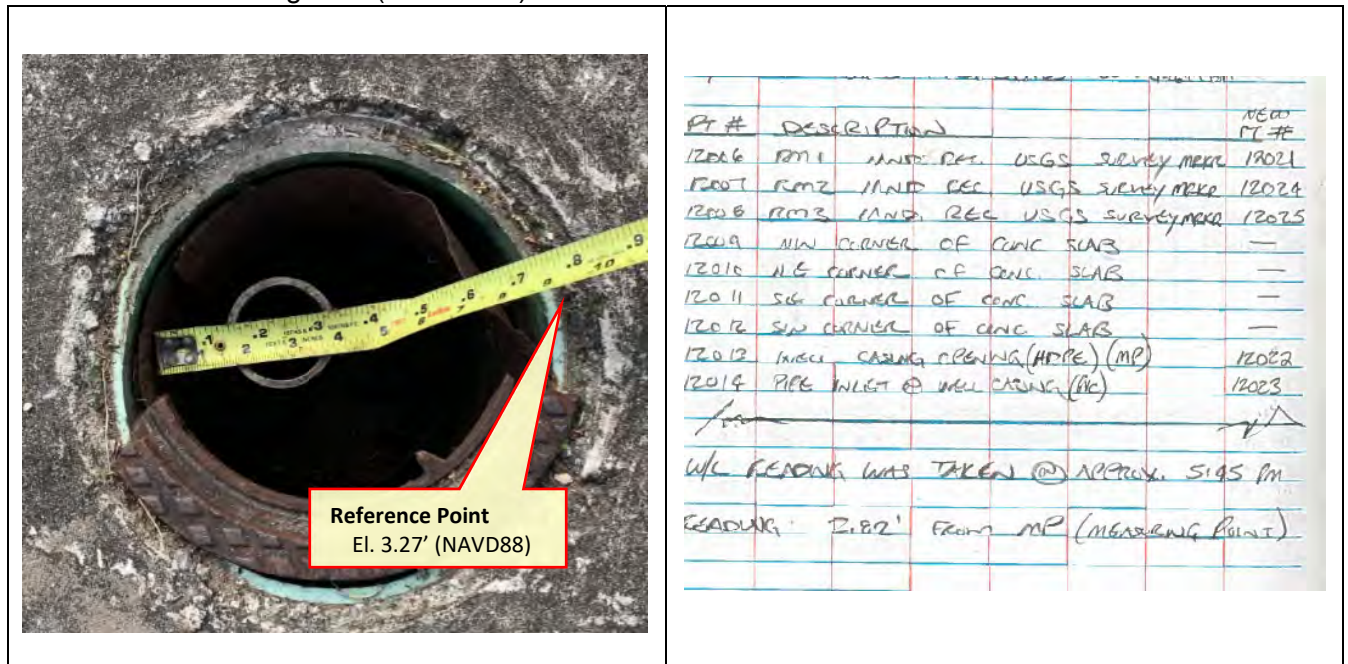 .1 .2 .3 .4 .5 .6 .7 .8 .9
2 3 4 5 6 7 8 9 10
Reference Point
El. 3.27' (NAVD88)
PT # DESCRIPTION NEW PT #
12006 RM1 AND REC. USGS SURVEY MRKR 12021
12007 RM2 AND REC USGS SURVEY MRKR 12024
12008 RM3 AND. REC USGS SURVEY MRKR 12025
12009 NW CORNER OF CONC SLAB —
12010 NE CORNER OF CONC. SLAB —
12011 SE CORNER OF CONC SLAB —
12012 SW CORNER OF CONC SLAB —
12013 WELL CASING OPENING (HDPE) (MP) 12022
12014 PIPE INLET @ WELL CASING (PVC) 12023
W/L READING WAS TAKEN @ APPROX. 5:45 PM
READING: 2.82' FROM MP (MEASURING POINT)